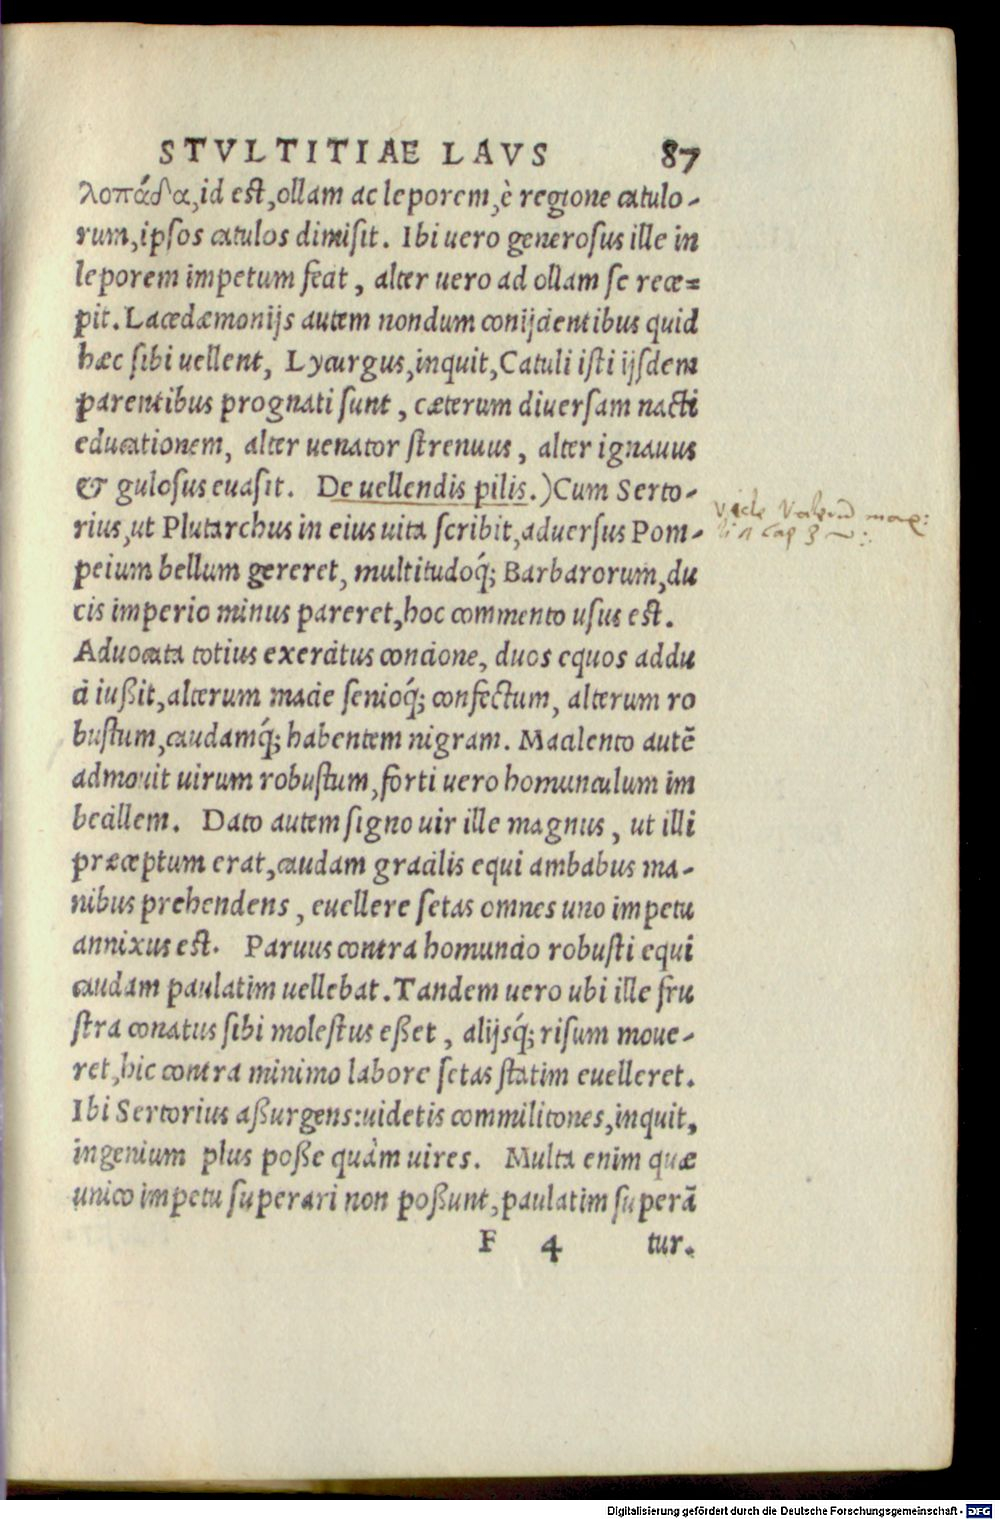 STVLTITIAE LAVS 87
λοπάδα, id est, ollam ac leporem, è regione catulo-
rum, ipsos catulos dimisit. Ibi uero generosus ille in
leporem impetum fecit, alter uero ad ollam se rece=
pit. Lacedæmonijs autem nondum conijcientibus quid
hæc sibi uellent, Lycurgus, inquit, Catuli isti ijsdem
parentibus prognati sunt, cæterum diuersam nacti
educationem, alter uenator strenuus, alter ignauus
& gulosus euasit. De uellendis pilis.) Cum Serto-
rius, ut Plutarchus in eius uita scribit, aduersus Pom-
peium bellum gereret, multitudoq́; Barbarorum, du
cis imperio minus pareret, hoc commento usus est.
Aduocata totius exercitus concione, duos equos addu
ci iußit, alterum macie senioq́; confectum, alterum ro
bustum, caudamq́; habentem nigram. Macilento autē
admouit uirum robustum, forti uero homunculum im
becillem. Dato autem signo uir ille magnus, ut illi
præceptum erat, caudam gracilis equi ambabus ma-
nibus prehendens, euellere setas omnes uno impetu
annixus est. Paruus contra homuncio robusti equi
caudam paulatim uellebat. Tandem uero ubi ille fru
stra conatus sibi molestus eßet, alijsq́; risum moue-
ret, hic contra minimo labore setas statim euelleret.
Ibi Sertorius aßurgens: uidetis commilitones, inquit,
ingenium plus poße quàm uires. Multa enim quæ
unico impetu superari non poßunt, paulatim superā
F 4 tur.
Vide max:
Cap 3
Digitalisierung gefördert durch die Deutsche Forschungsgemeinschaft - DFG